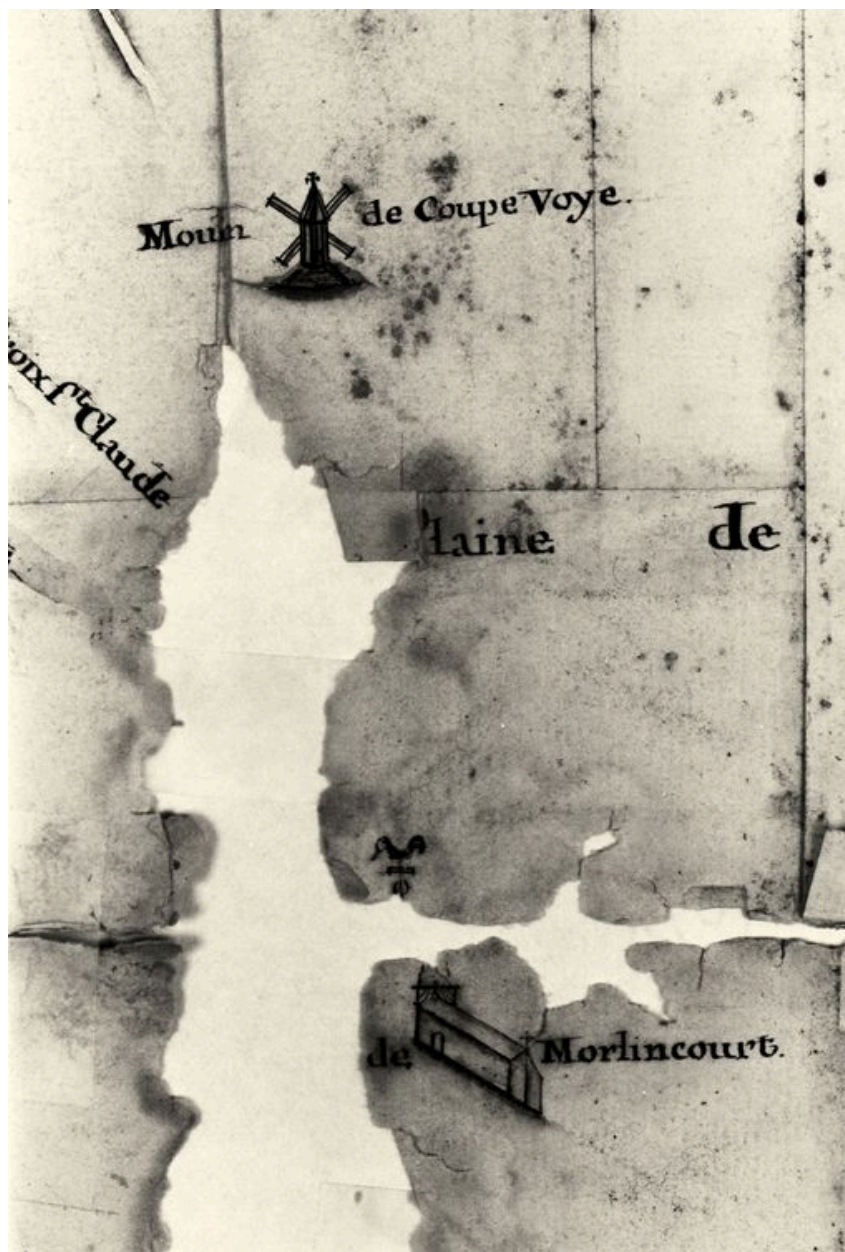 Moulin de Coupe Voye.
roix St Claude
laine de
de Morlincourt.